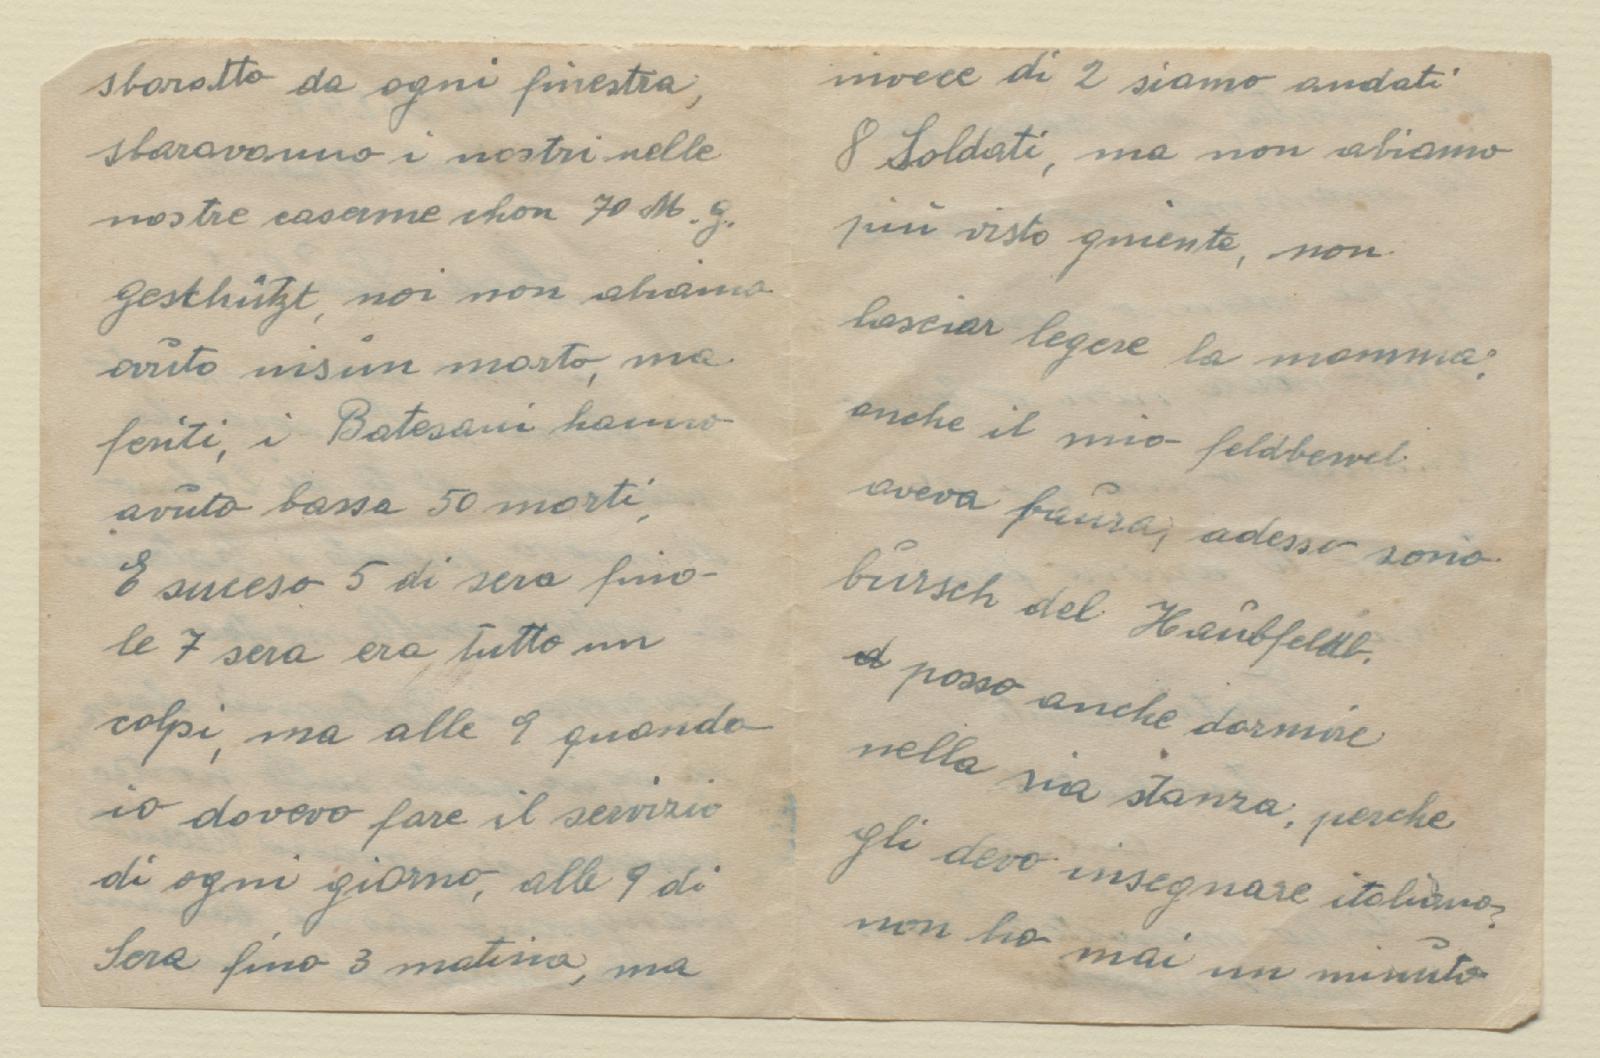 sbaratto da ogni finestra,
sbaravanno i nostri nelle
nostre caserme chon 70 M.g.
geschützt, noi non abiamo
avŭto nisŭn morto, ma
feriti, i Batesani hanno
avŭto bassa 50 morti,
E suceso 5 di sera fino
le 7 sera era tutto un
colpi, ma alle 9 quando
io dovevo fare il servizio
di ogni giorno, alle 9 di
Sera fino 3 matina, ma
invece di 2 siamo andati
8 Soldati, ma non abiamo
più visto gniente, non
lasciar legere la mamma;
anche il mio feldbewel
aveva baŭra; adesso sono
bŭrsch del Haŭbfeldb.
posso anche dormire
nella sia stanza; perche
gli devo insegnare italiano;
non ho mai un minŭto